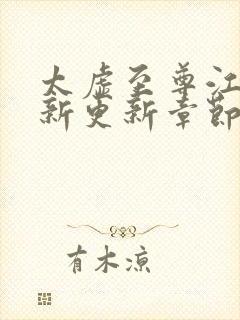 太虚至尊江
新更新章节
有木凉